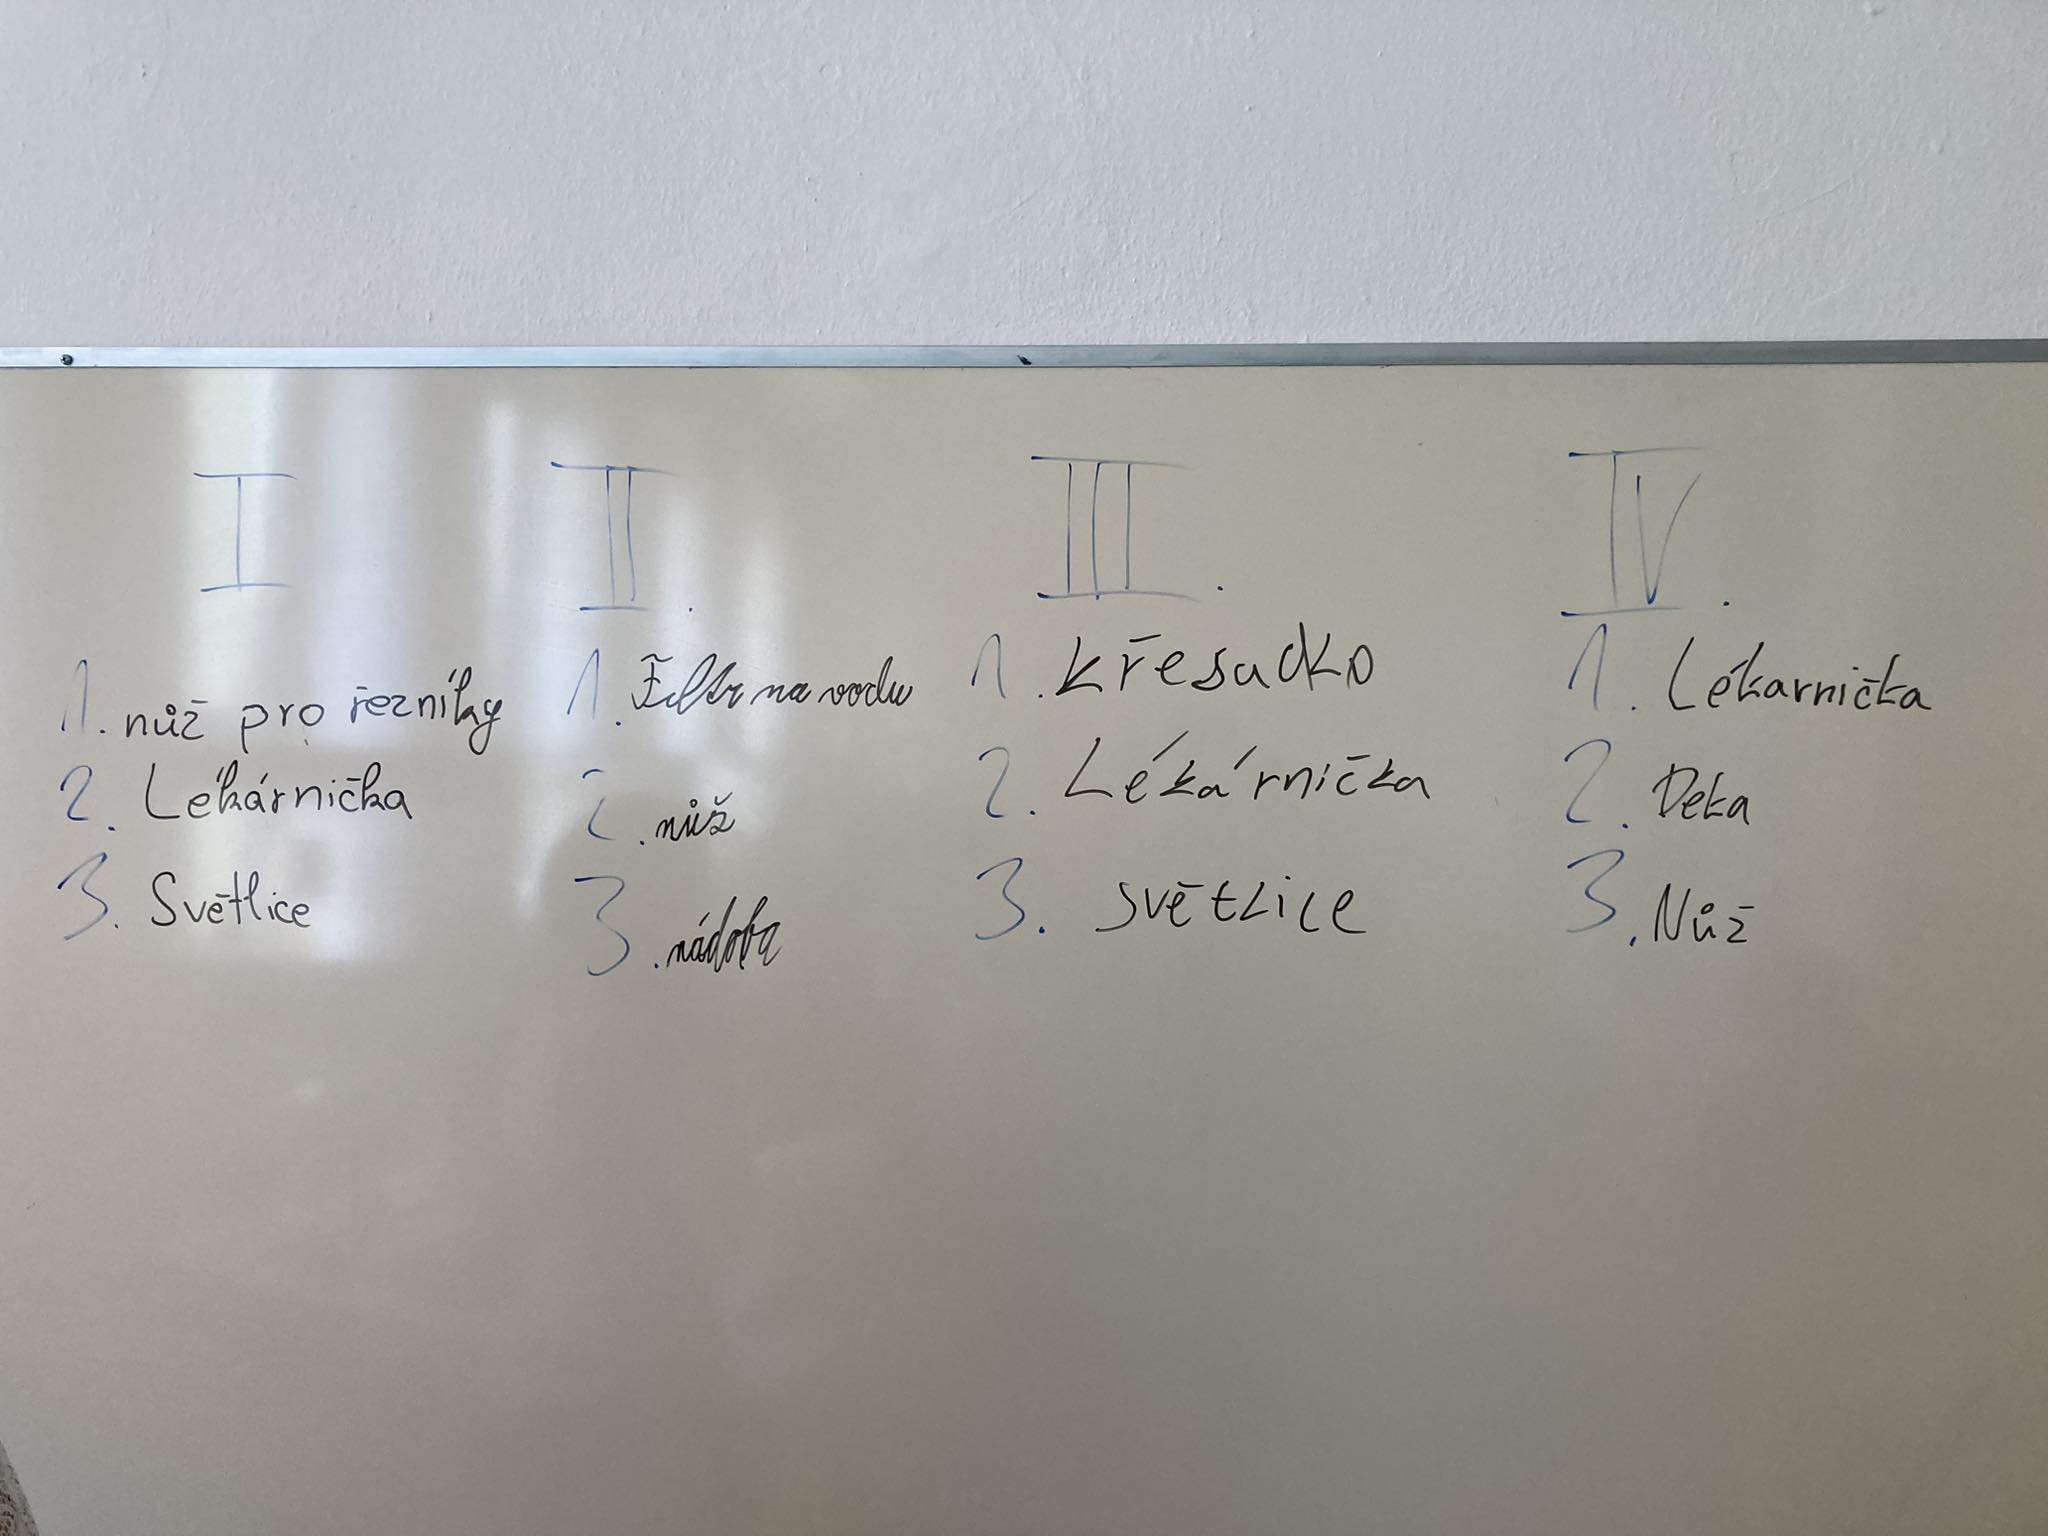 I
1. nůž pro řezníky
2. Lékárnička
3. Světlice
II.
1. Filtr na vodu
2. nůž
3. nádoba
III.
1. křesadko
2. Lékárnička
3. světlice
IV.
1. Lékarnička
2. Deka
3. Nůž